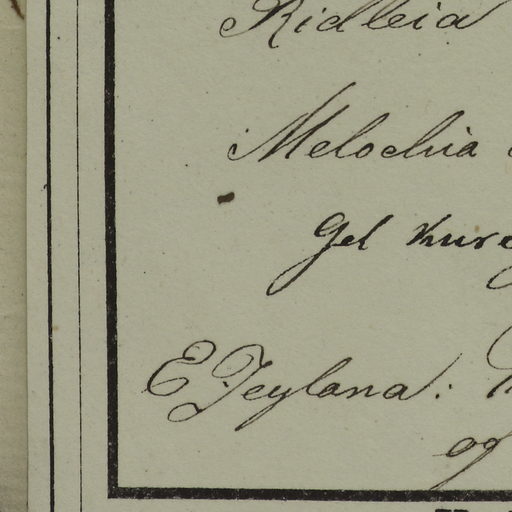 Ridleia
Melochia
Gel kur
E Zeylana:
og